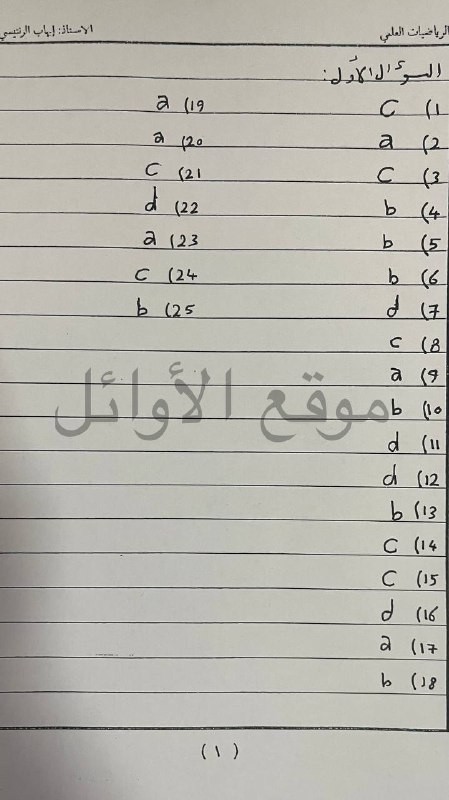 الرياضيات العلمي
الاستاذ: إيهاب الرنتيسي
السؤال الأول:
1) c
2) a
3) c
4) b
5) b
6) b
7) d
8) c
9) a
10) b
11) d
12) d
13) b
14) c
15) c
16) d
17) a
18) b
19) a
20) a
21) c
22) d
23) a
24) c
25) b
موقع الأوائل
(١)